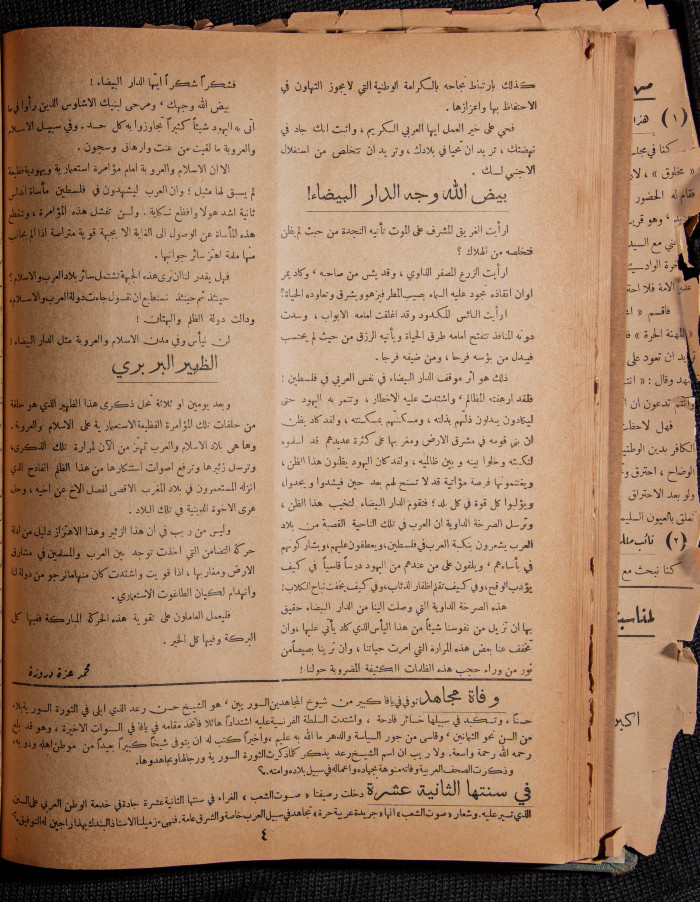 كذلك بارتباط نجاحه بالكرامة الوطنية التي لايجوز التهاون في
الاحتفاظ بها واعزازها .
فحي على خير العمل ايها العربي الكريم ، وأثبت انك جاد في
نهضتك ، تريد ان تحيا في بلادك ، وتريد ان تتخلص من استغلال
الاجنبي لك .
بيض الله وجه الدار البيضاء!
ارأيت الغريق المشرف على الموت تأتيه النجدة من حيث لم يظن
فتخلصه من الهلاك ؟
ارأيت الزرع المصفر الذاوي ، وقد يئس من صاحبه ، وكاد يمر
اوان انقاذه تجود عليه السماء بصيب المطر فيزهو ويشرق وتعاوده الحياة؟
ارأيت البائس المكدود وقد اغلقت امامه الابواب ، وسدت
دونه المنافذ تتفتح امامه طرق الحياة ويأتيه الرزق من حيث لم يحتسب
فيبدل من بؤسه فرحا ، ومن ضيقه فرجا .
ذلك هو اثر موقف الدار البيضاء في نفس العربي في فلسطين !
فلقد ارهقته المظالم ، واشتدت عليه الاخطار ، وتنمر به اليهود حتى
ليكادون يبدلون ذلتهم بذلته ، ومسكنتهم بمسكنته ، ولقد كاد يظن
ان بني قومه في مشرق الارض ومغربها على كثرة عديدهم قد اسلموه
لنكبته وخلوا بينه وبين ظالميه ، ولقد كان اليهود يظنون هذا الظن ،
ويغتنمونها فرصة مؤاتية قد لا تسنح لهم بعد حين فيشدوا ويجدوا،
ويؤلبوا كل قوة في كل بلد ؛ فتقوم الدار البيضاء لتخيب هذا الظن ،
وترسل الصرخة الداوية ان العرب في تلك الناحية القصية من بلاد
العرب يشعرون بنكبة العرب في فلسطين، ويعطفون عليهم، ويشاركونهم
في بأساءهم ، ويلقون على من عندهم من اليهود درساً قاسياً في كيف
يؤدب الوقح، وفي كيف تقلم اظفار الذئاب، وفي كيف يخفت نباح الكلاب!
هذه الصرخة الداوية التي وصلت الينا من الدار البيضاء حقيق
بها ان تزيل من نفوسنا شيئاً من هذا اليأس الذي كاد يأتي عليها ،وان
تخفف عنا بعض هذه المرارة التي امرت حياتنا ، وان ترينا بصيصاً من
نور من وراء حجب هذه الظلمات الكثيفة المضروبة حولنا !
فشكراً شكراً ايتها الدار البيضاء !
بيض الله وجهك ، ومرحى لبنيك الاشاوس الذين رأوا في ما
اتى به اليهود شيئاً كثيراً تجاوزوا به كل حد . وفي سبيل الاسلام
والعروبة ما لقيت من عنت وارهاق وسجون .
الا ان الاسلام والعروبة امام مؤامرة استعمارية ويهودية فظيعة
لم يسبق لها مثيل ؛ وان العرب ليشهدون في فلسطين مأساة اندلس
ثانية اشد هولا وافظع نكاية . ولن تفشل هذه المؤامرة ، وتنقطع
هذه المأساة عن الوصول الى الغاية الا بجبهة قوية متراصة اذا لم بجانب
منها ملمة اهتز سائر جوانبها .
فهل يقدر لنا ان نرى هذه الجبهة تشتمل سائر بلاد العرب والاسلام؟
حينئذ ثم حينئذ نستطيع ان نقول جاءت دولة العرب والاسلام،
ودالت دولة الظلم والبهتان !
لن نيأس وفي مدن الاسلام والعروبة مثل الدار البيضاء !
الظهير البربري
وبعد يومين او ثلاثة تحل ذكرى هذا الظهير الذي هو حلقة
من حلقات تلك المؤامرة الفظيعة الاستعمارية على الاسلام والعروبة .
وها هي بلاد الاسلام والعرب تهتز من الآن لمرارة تلك الذكرى،
وترسل زئيرها وترفع اصوات استنكارها من هذا الظلم الفادح الذي
انزله المستعمرون في بلاد المغرب الاقصى لفصل الاخ عن اخيه ، وحل
عرى الاخوة الدينية في تلك البلاد .
وليس من ريب في ان هذا الزئير وهذا الاهتزاز دليل من ادلة
حركة التضامن التي اخذت توجد بين العرب والمسلمين في مشارق
الارض ومغاربها ، اذا قويت واشتدت كان منها ما نرجو من دولة لنا
وانهدام لكيان الطاغوت الاستعماري .
فليعمل العاملون على تقوية هذه الحركة المباركة ففيها كل
البركة وفيها كل الخير .
محمد عزة دروزة
وفاة مجاهد توفي في يافا كبير من شيوخ المجاهدين السوريين ، هو الشيخ حسن رعد الذي ابلى في الثورة السورية بلاء
حسناً ، وتكبد في سبيلها خسائر فادحة ، واشتدت السلطة الفرنسية عليه اشتداداً هائلا فاتخذ مقامه في يافا في السنوات الاخيرة ، وهو قد بلغ
من السن نحو الثمانين ، وقاسى من جور السياسة والدهر ما الله به عليم ، واخيراً كتب له ان يتوفى شيخاً كبيراً بعيداً عن موطن اهله وذويه،
رحمه الله رحمة واسعة. ولا ريب ان اسم الشيخ رعد يذكر كلما ذكرت الثورة السورية ورجالها ومجاهدوها.
وذكرت الصحف العربية وفاته منوهة بجهاده واعماله في سبيل بلاده وامته .
في سنتها الثانية عشرة دخلت رصيفتنا « صوت الشعب » الغراء في سنتها الثانية عشرة جادة في خدمة الوطن العربي على السنن
الذي تسير عليه. وشعار «صوت الشعب» انها «جريدة عربية حرة» تجاهد في سبيل العرب خاصة والشرق عامة. فنهنئ زميلنا الاستاذ البندك بهذا راجين له التوفيق.
٤
(١) هذا
كنا في مجلس
« مخلوق » ، لار
فقام له الحضور
فاقسم « اشـ
« المهنة الحرة »
يريد ان تعود على
وقال : « انتـ
تدعون ان
فهل لاحظت
الكافر بدين الوطنية
الوضاح ، احترق و
ولو بعد الاحتراق
تملق بالعيون السليمة
(٢) نائب مطـ
كنا نبحث مع
لمناسبة
اكبر